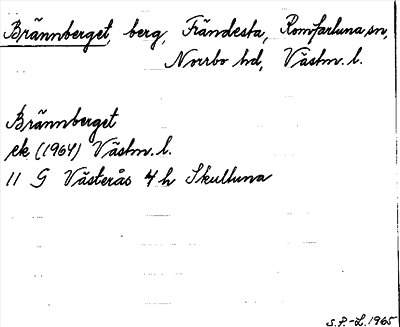 Brännberget, berg, Frändesta, Romfartuna sn,
Norrbo hd, Västm. l.
Brännberget
ek (1964) Västm. l.
11 G Västerås 4 h Skultuna
S.P.-L. 1965